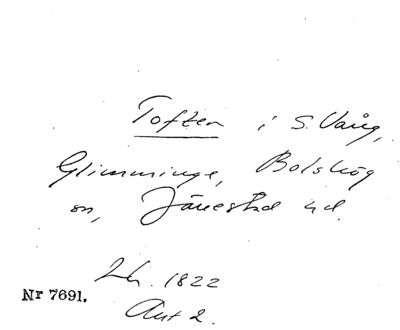 Toften i S. Vång,
Glimminge, Bolshög
sn, Järrestad hd.
Lh. 1822
Akt 2.
Nr 7691.